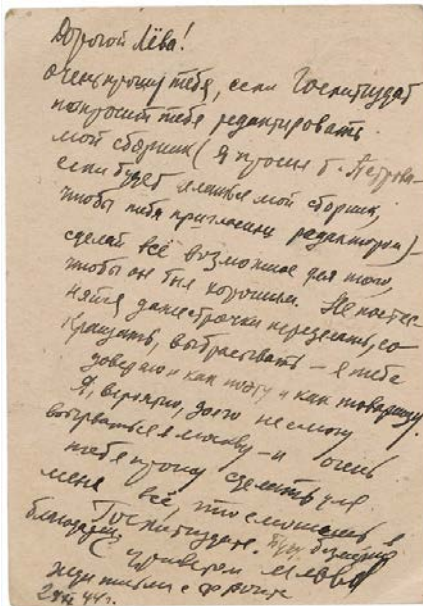 Дорогой Лёва!
очень прошу тебя, если Гослитиздат
попросит тебя редактировать
мой сборник (я просил т. Петрова –
если будет мой сборник,
чтобы тебя пригласили редактором) –
сделай всё возможное для того,
чтобы он был хорошим. Не постес-
няйся даже строчки переделать, со-
кращать, выбрасывать – я тебе
доверяю и как поэту и как товарищу.
Я, вероятно, долго не смогу
вырваться в москву – и очень
тебя прошу сделать для
меня всё, что сможешь, в
Гослитиздате. Буду безмерно
благодарен. С приветом
жди письма с фронта
44 г.